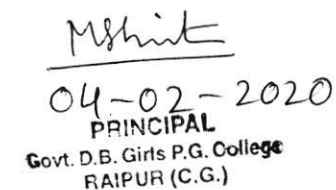 04-02-2020
PRINCIPAL
Govt. D.B. Girls P.G. College
RAIPUR (C.G.)